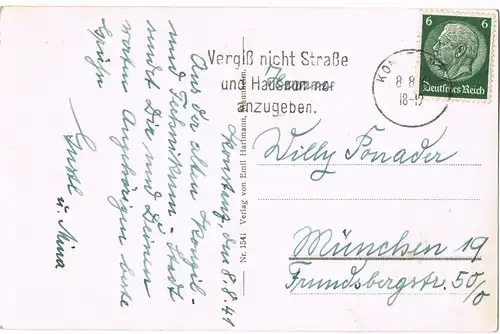 Konstanz, den 8.8.41
Aus der alten Konzil-
und Technikum-Stadt
sendet Dir und Deinen
werten Angehörigen beste
Grüße
Gustl
u. Mina
Nr. 1541 Verlag von Emil Hartmann, Mannheim.
Vergiß nicht Straße
und Hausnummer
anzugeben.
KON
8.8.
18-19
6 6
Deutsches Reich
Herrn
Willy Ponader
München 19
Frundsbergstr. 50/0